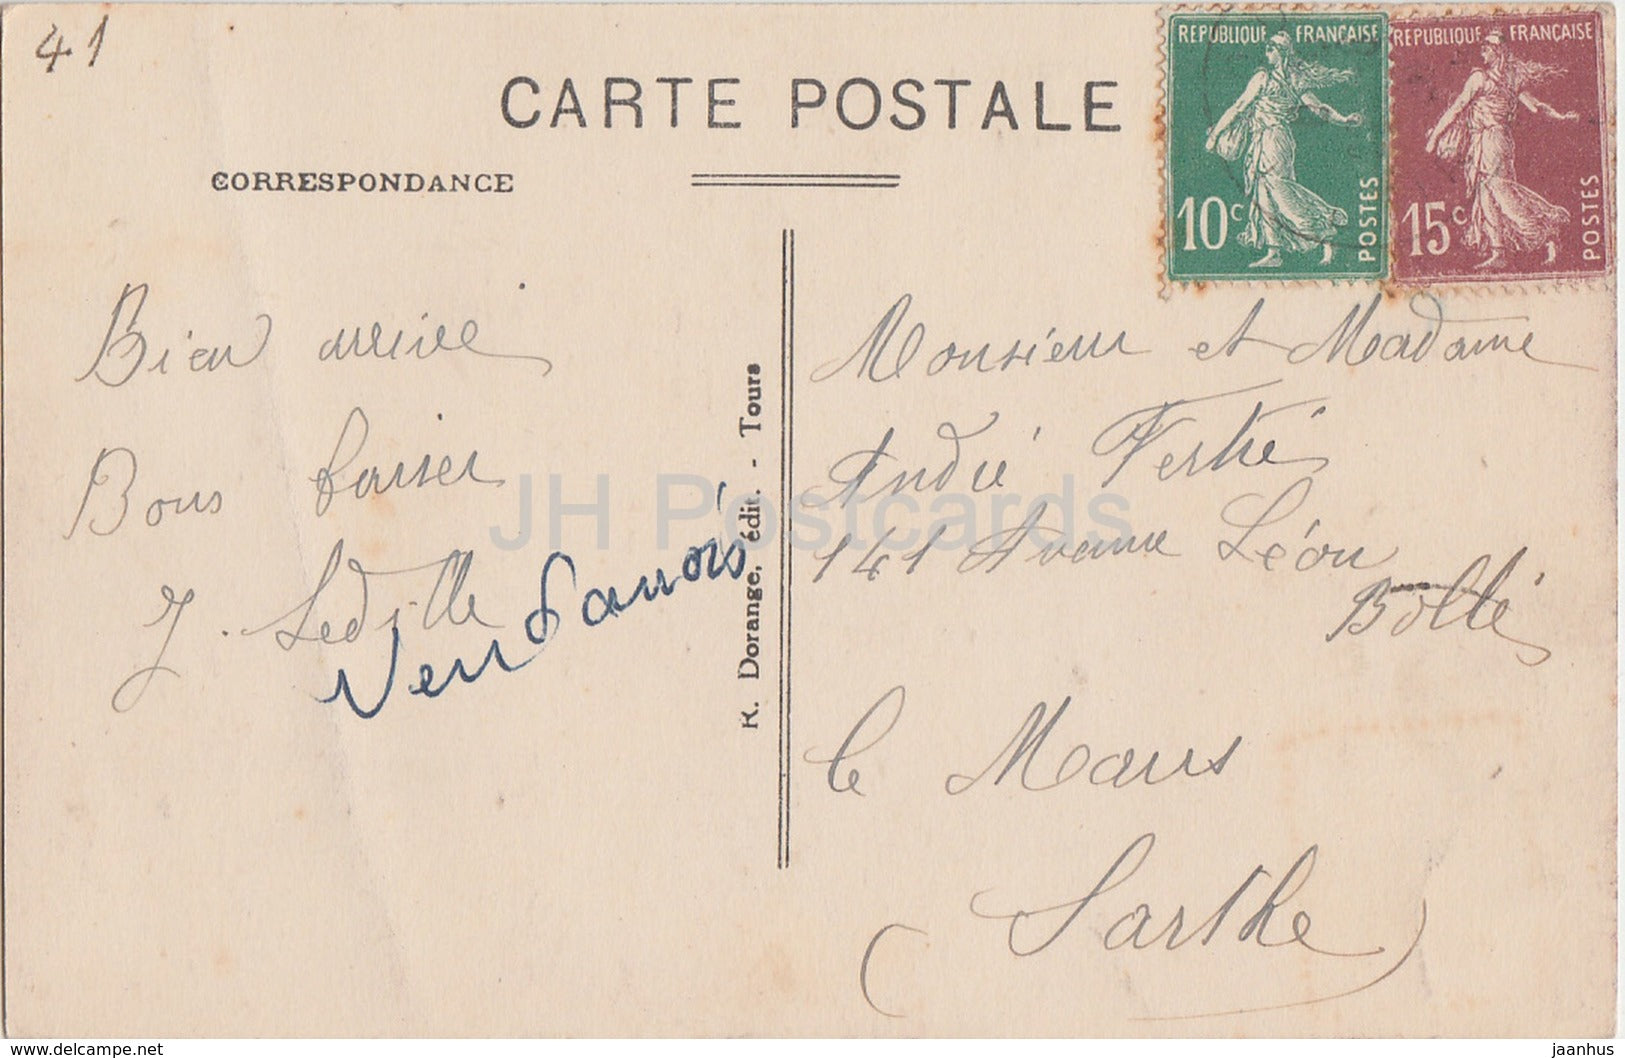 41
CARTE POSTALE
REPUBLIQUE FRANÇAISE
10c
POSTES
REPUBLIQUE FRANÇAISE
15c
POSTES
CORRESPONDANCE
Bien arrivé
Bons baiser
J. Ledille
Vendômois
R. Dorange, édit. - Tours
Monsieur et Madame
André Fertré
141 Avenue Léon
Bollé
le Mans
(Sarthe)
JH Postcards
delcampe.net
jaanhus